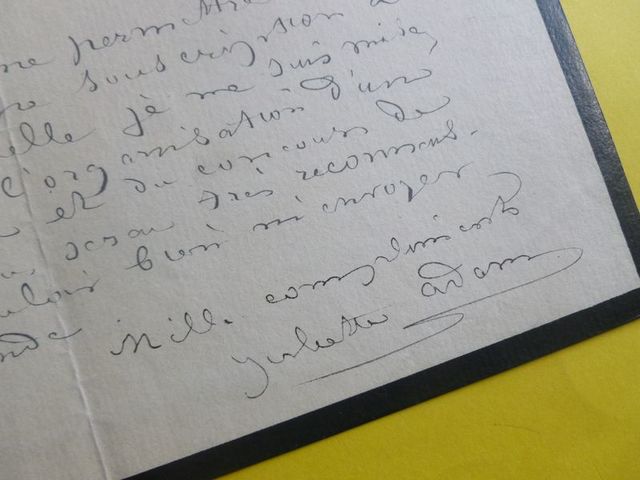 me permettre
souscription à
elle je me suis mise,
l'organisation d'une
et du concours de
serai très reconnais-
bien m'envoyer
Mille compliments
Juliette Adam